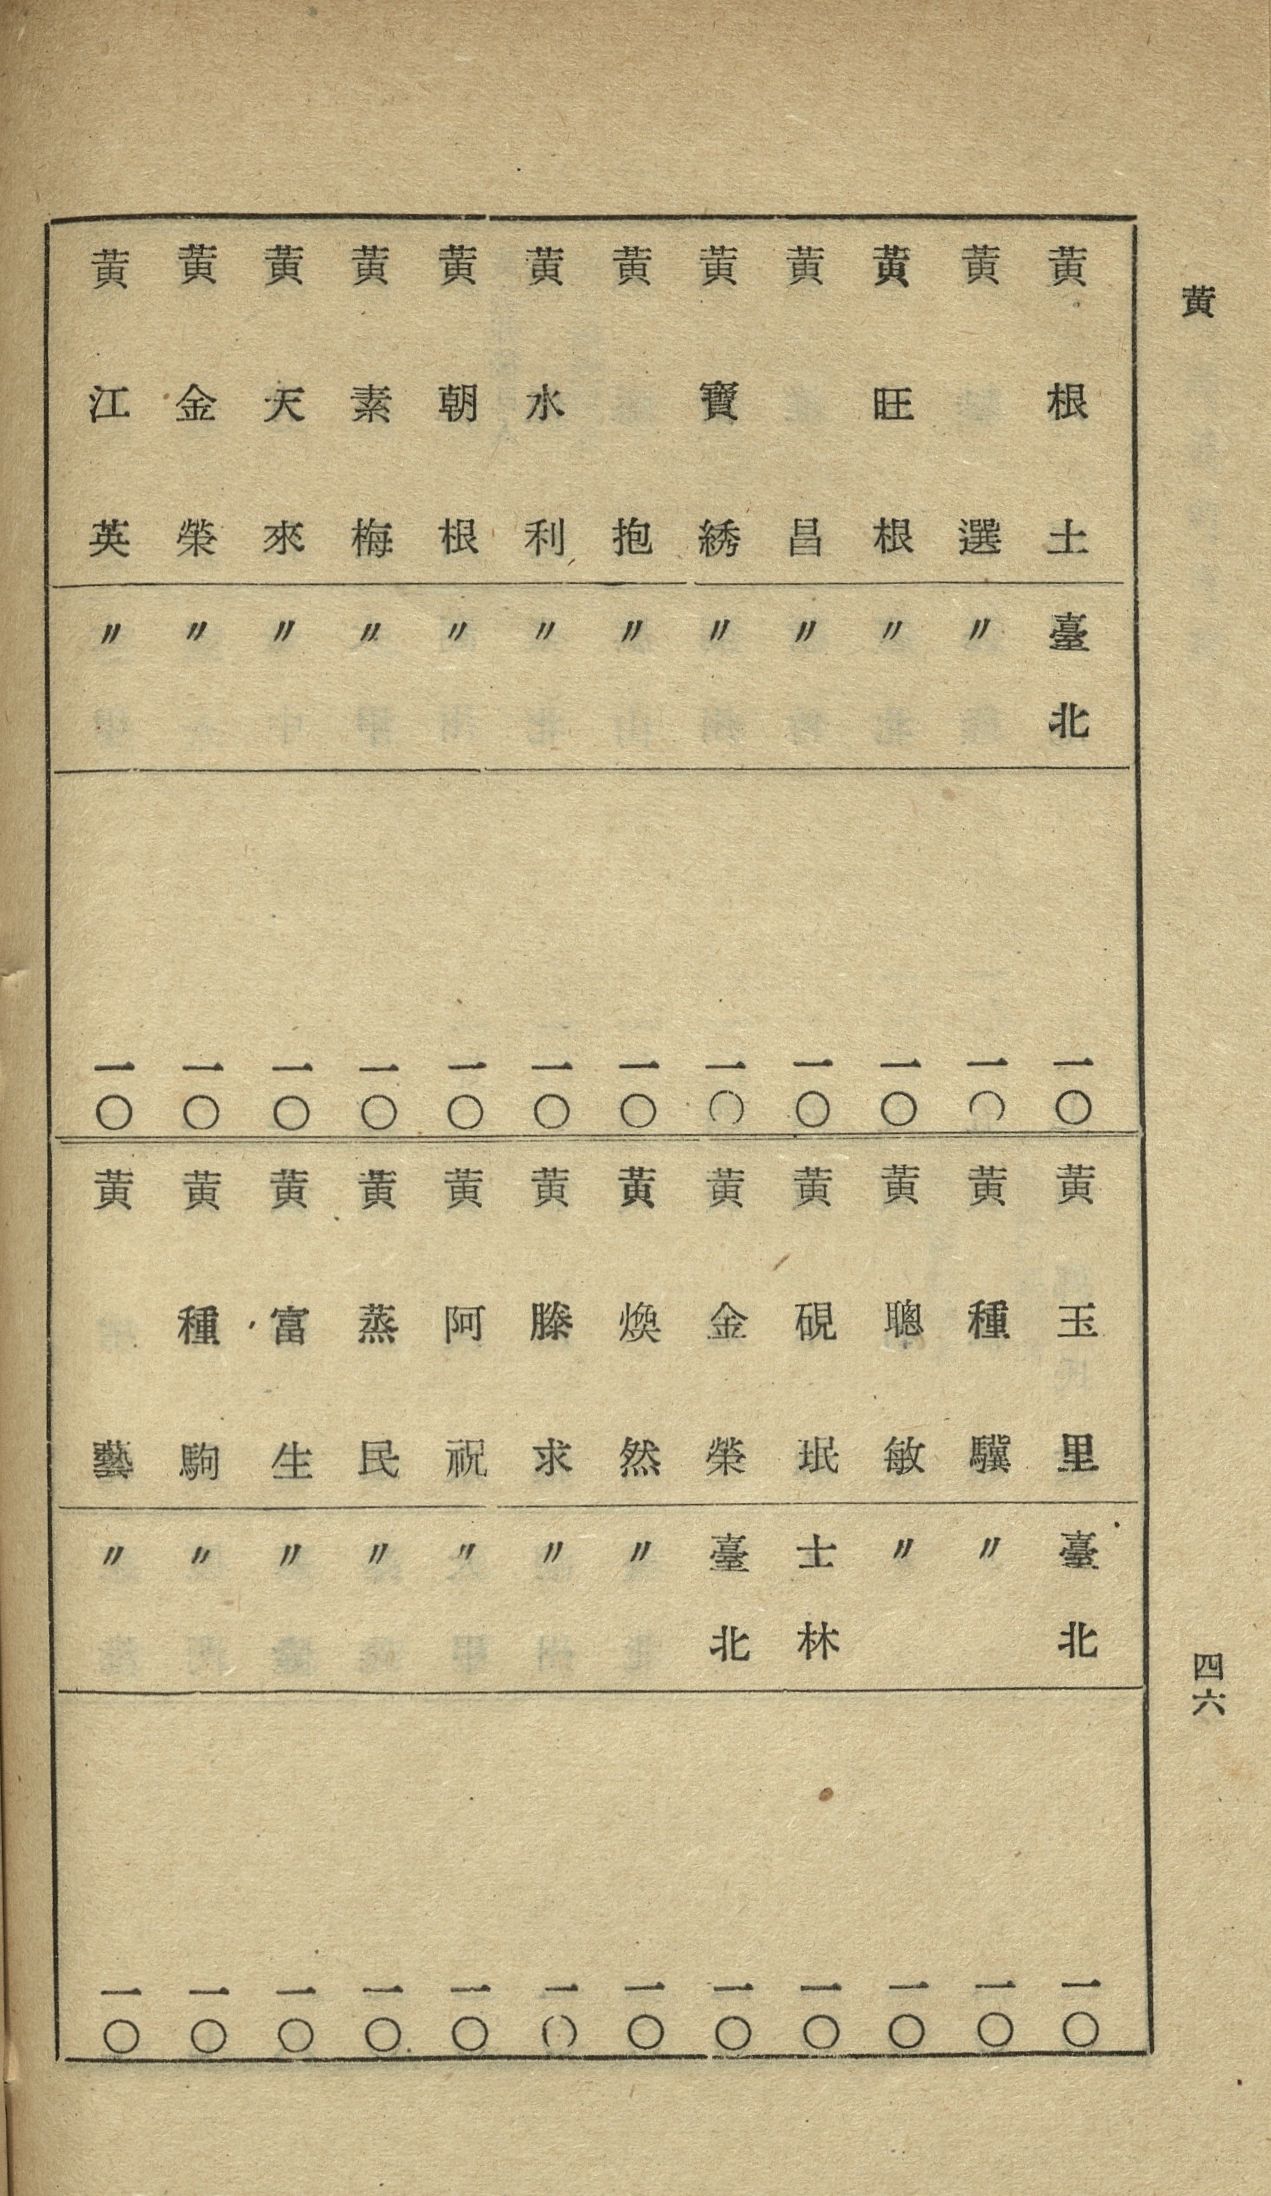 黃
四六
黃根土 臺北 一〇
黃選 〃 一〇
黃旺根 〃 一〇
黃昌 〃 一〇
黃寶綉 〃 一〇
黃抱 〃 一〇
黃水利 〃 一〇
黃朝根 〃 一〇
黃素梅 〃 一〇
黃天來 〃 一〇
黃金榮 〃 一〇
黃江英 〃 一〇
黃玉里 臺北 一〇
黃種驥 〃 一〇
黃聰敏 〃 一〇
黃硯珉 士林 一〇
黃金榮 臺北 一〇
黃煥然 〃 一〇
黃滕求 〃 一〇
黃阿祝 〃 一〇
黃蒸民 〃 一〇
黃富生 〃 一〇
黃種駒 〃 一〇
黃藝 〃 一〇